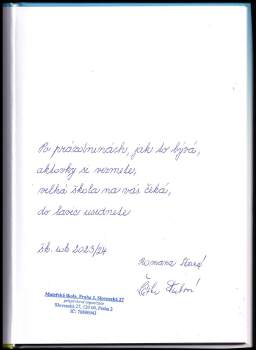 Po prázdninách, jak to bývá,
aktovky si vezmete,
velká škola na vás čeká,
do lavic usednete
šk. rok 2023/24
Romana Stará
Mateřská škola, Praha 2, Slovenská 27
příspěvková organizace
Slovenská 27, 120 00, Praha 2
IČ: